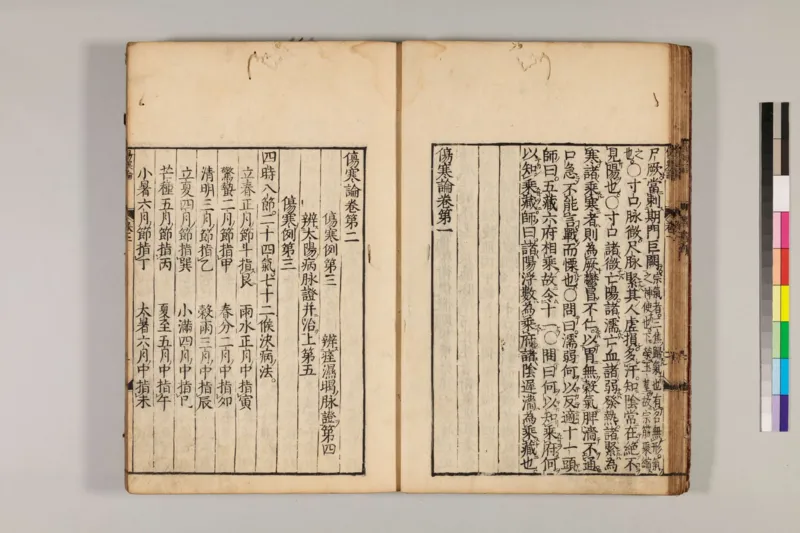 尸厥當刺期門巨闕
也○寸口脉微尺脉緊其人虚損多汗知陰常在絶不
見陽也○寸口諸微亡陽諸濡亡血諸弱發熱諸緊為
寒諸乘寒者則為厥鬱冒不仁以胃無穀氣脾濇不通
口急不能言戰而慄也○問曰濡弱何以反適十一頭
師曰五藏六府相乘故令十一○問曰何以知乘府何
以知乘藏師曰諸陽浮數為乘府諸陰遲濇為乘藏也
傷寒論卷第一
傷寒論卷第二
傷寒例第三　痓濕暍脉證第四
辨太陽病脉證并治上第五
傷寒例第三
四時八節二十四氣七十二候決病法
立春正月節斗指艮　雨水正月中指寅
驚蟄二月節指甲　春分二月中指卯
清明三月節指乙　穀雨三月中指辰
立夏四月節指巽　小滿四月中指巳
芒種五月節指丙　夏至五月中指午
小暑六月節指丁　大暑六月中指未